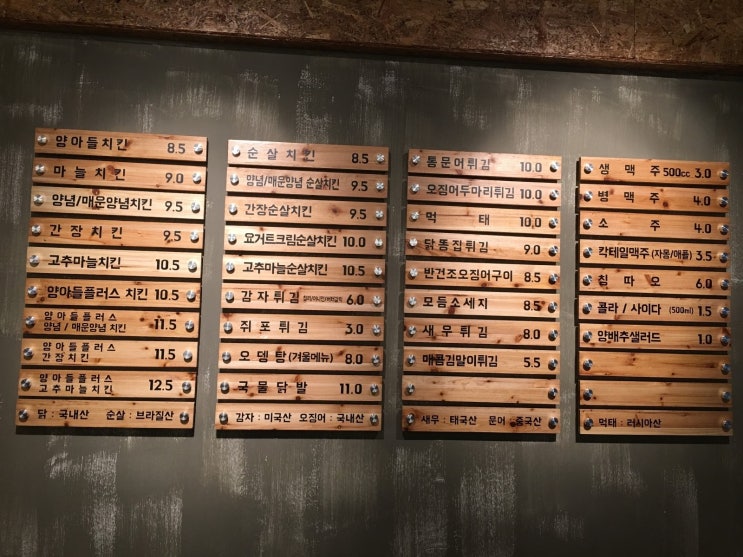 양아들치킨 8.5
마늘치킨 9.0
양념/매운양념치킨 9.5
간장치킨 9.5
고추마늘치킨 10.5
양아들플러스 치킨 10.5
양아들플러스
양념/매운양념 치킨 11.5
양아들플러스
간장치킨 11.5
양아들플러스
고추마늘치킨 12.5
닭 : 국내산 순살 : 브라질산
순살치킨 8.5
양념/매운양념 순살치킨 9.5
간장순살치킨 9.5
요거트크림순살치킨 10.0
고추마늘순살치킨 10.5
감자튀김 6.0
쥐포튀김 3.0
오뎅탕 (겨울메뉴) 8.0
국물닭발 11.0
감자 : 미국산 오징어 : 국내산
통문어튀김 10.0
오징어두마리튀김 10.0
먹태 10.0
닭똥집튀김 9.0
반건조오징어구이 8.5
모듬소세지 8.5
새우튀김 8.0
매콤김말이튀김 5.5
새우 : 태국산 문어 : 중국산
생맥주 500cc 3.0
병맥주 4.0
소주 4.0
칵테일맥주 (자몽/애플) 3.5
칭따오 6.0
콜라 / 사이다 (500ml) 1.5
양배추샐러드 1.0
먹태 : 러시아산